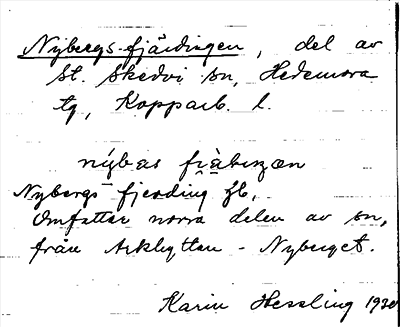 Nybergs-fjärdingen, del av
St. Skedvi sn, Hedemora
tg, Kopparb. l.
Nybergs fjerding jb.
Omfattar norra delen av sn,
från Arkhyttan - Nyberget.
Karin Hessling 1930